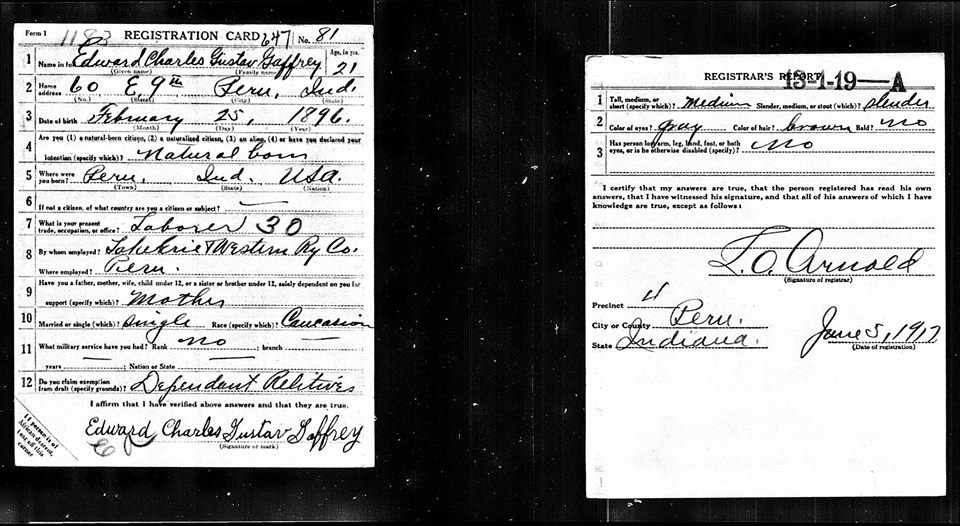 Form 1 1183 REGISTRATION CARD 647 No. 81
1 Name in full Edward Charles Gustav Gaffrey Age, in yrs. 21
(Given name) (Family name)
2 Home address 60 E. 9th Peru, Ind.
(No.) (Street) (City) (State)
3 Date of birth February 25, 1896.
(Month) (Day) (Year)
4 Are you (1) a natural-born citizen, (2) a naturalized citizen, (3) an alien, (4) or have you declared your
intention (specify which)? Natural born
5 Where were you born? Peru, Ind. USA.
(Town) (State) (Nation)
6 If not a citizen, of what country are you a citizen or subject?
7 What is your present trade, occupation, or office? Laborer 30
8 By whom employed? Lake Erie & Western Ry Co.
Where employed? Peru.
9 Have you a father, mother, wife, child under 12, or a sister or brother under 12, solely dependent on you for
support (specify which)? Mother
10 Married or single (which)? Single Race (specify which)? Caucasion
11 What military service have you had? Rank no ; branch
years ; Nation or State
12 Do you claim exemption from draft (specify grounds)? Dependant Relitives
I affirm that I have verified above answers and that they are true.
Edward Charles Gustav Gaffrey
(Signature or mark)
If person is of
African descent,
tear off this
corner
REGISTRAR'S REPORT 13-1-19—A
1 Tall, medium, or short (specify which)? medium Slender, medium, or stout (which)? slender
2 Color of eyes? gray Color of hair? brown Bald? No
3 Has person lost arm, leg, hand, foot, or both
eyes, or is he otherwise disabled (specify)? No
I certify that my answers are true, that the person registered has read his own
answers, that I have witnessed his signature, and that all of his answers of which I have
knowledge are true, except as follows:
L. O. Arnold
(Signature of registrar)
Precinct 4
City or County Peru.
State Indiana. June 5, 1917
(Date of registration)